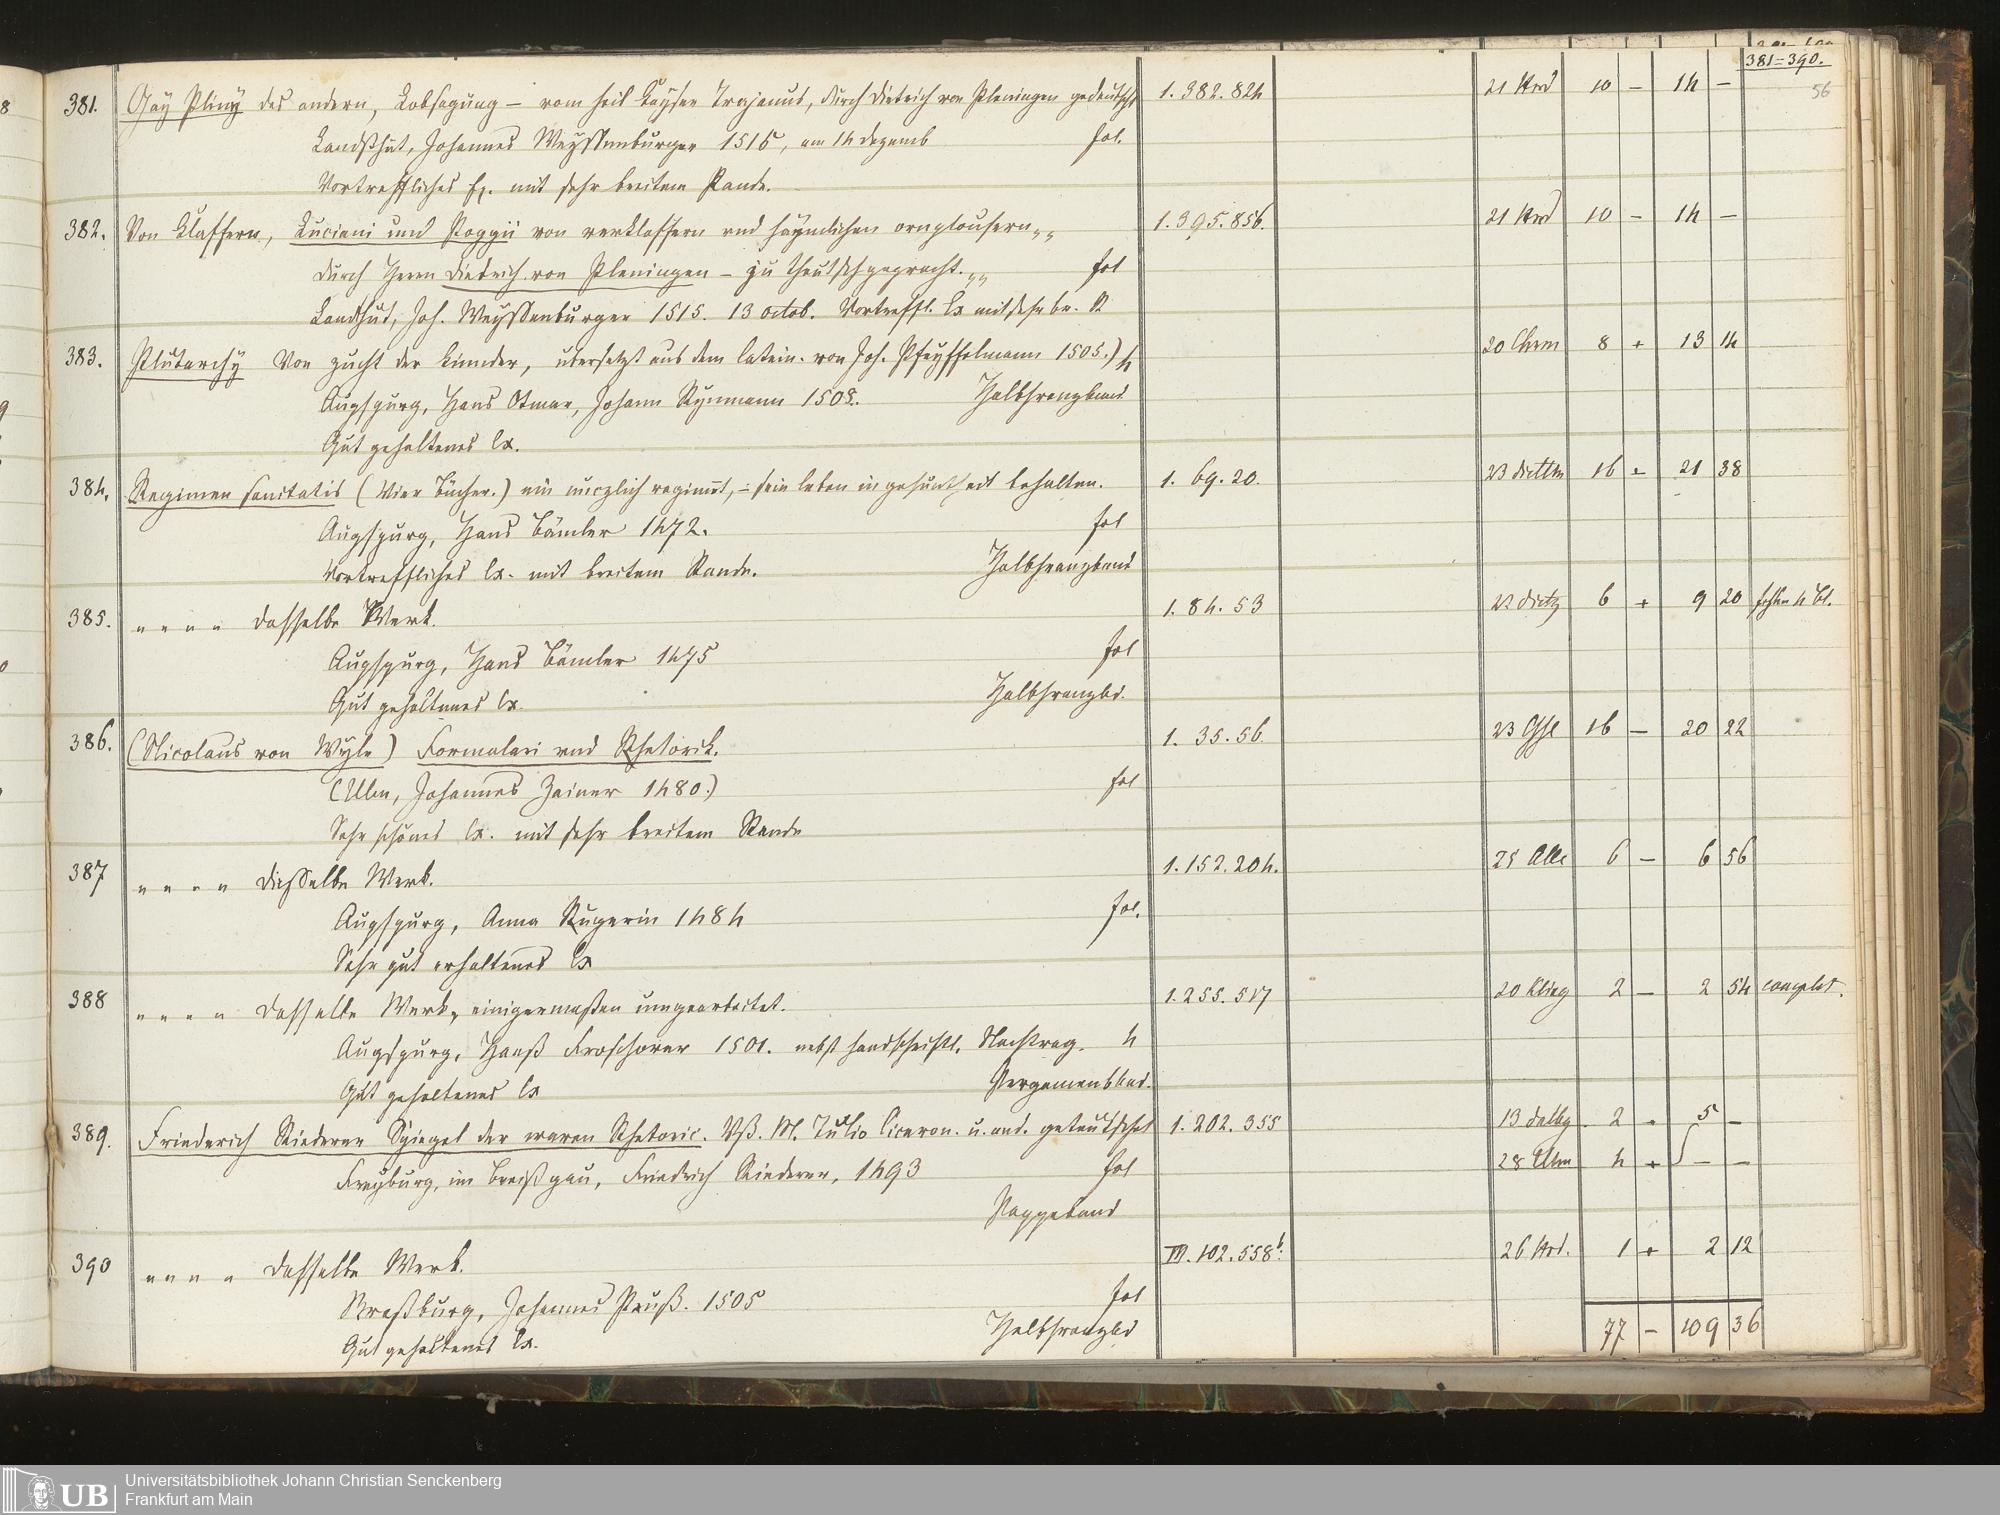 381–390.
56
381. Gay Pliny des andern, Lobsagung – vom heil Kayser Trajanus, durch Dietrich von Pleningen gedeutscht 1. 382. 824 21 10 – 14 –
Landßhut, Johannes Weyssenburger 1515, am 14 dezemb fol.
Vortreffliches Ex. mit sehr breitem Rande.
382. Von Klaffern, Luciani und Poggii von verklaffern und haymlichen ornplousern „„ 1. 395. 856. 21 10 – 14 –
durch Herrn Dietrich von Pleningen – zu theutsch gepracht. „„ fol
Landßhut, Joh. Weyssenburger 1515. 13 octob. Vortreffl. Ex mit sehr br. R
383. Plutarchy Von zucht der kinnder, übersetzt aus dem latein. von Joh. Pfeyffelmann 1505.) 4 20 8 + 13 14
Augspurg, Hans Otmar, Johann Rynmann 1508. Halbfranzband
Gut gehaltenes Ex.
384. Regimen sanitatis (Vier Bücher.) ein nuczlich regimnt, – sein leben in gesuntheit behalten. 1. 69. 20. 23 16 – 21 38
Augspurg, Hans Bämler 1472. fol
Vortreffliches Ex. mit breitem Rande. Halbfranzband
385. „ „ „ „ dasselbe Werk. 1. 84. 53 6 + 9 20 fehlen 4 Bl.
Augspurg, Hans Bämler 1475 fol
Gut gehaltenes Ex. Halbfranzbd.
386. (Nicolaus von Wyle) Formulari und Rhetorik. 1. 35. 56. 23 16 – 20 22
(Ulm, Johannes Zainer 1480.) fol
Sehr schönes Ex. mit sehr breitem Rande
387 „ „ „ „ diesselbe Werk. 1. 152. 204. 25 6 – 6 56
Augspurg, Anna Rugerin 1484 fol.
Sehr gut erhaltenes Ex
388 „ „ „ „ dasselbe Werk, einigermaßen umgearbeitet. 1. 255. 517 20 2 – 2 54 complet.
Augspurg, Hanß Froschover 1501. nebst handschriftl. Nachtrag. 4
Gut gehaltenes Ex Pergamentband.
389. Friederich Riederer Spiegel der waren Rhetoric. Vß. M. Tulio Ciceron. u. and. geteutschet 1. 202. 355 13 dalbg. 2 – 5 –
Freyburg, im Breißgau, Friedrich Riederer, 1493 fol 28 Ulm 4 + – –
Pappeband
390 „ „ „ „ dasselbe Werk. III. 102. 558b. 26 1 + 2 12
Straßburg, Johannes Pruß. 1505 fol
Gut gehaltenes Ex. Halbfranzbd 77 – 109 36
UB Universitätsbibliothek Johann Christian Senckenberg
Frankfurt am Main